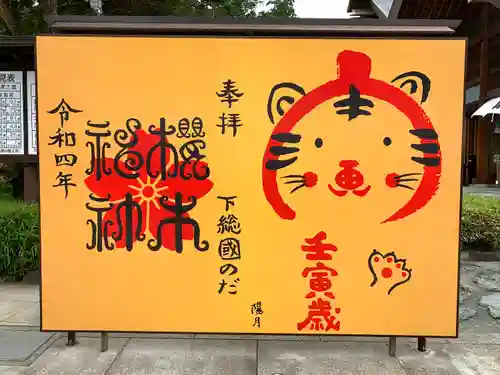 奉拝
櫻木
神社
下総國のだ
令和四年
陽月
壬寅歳
見表